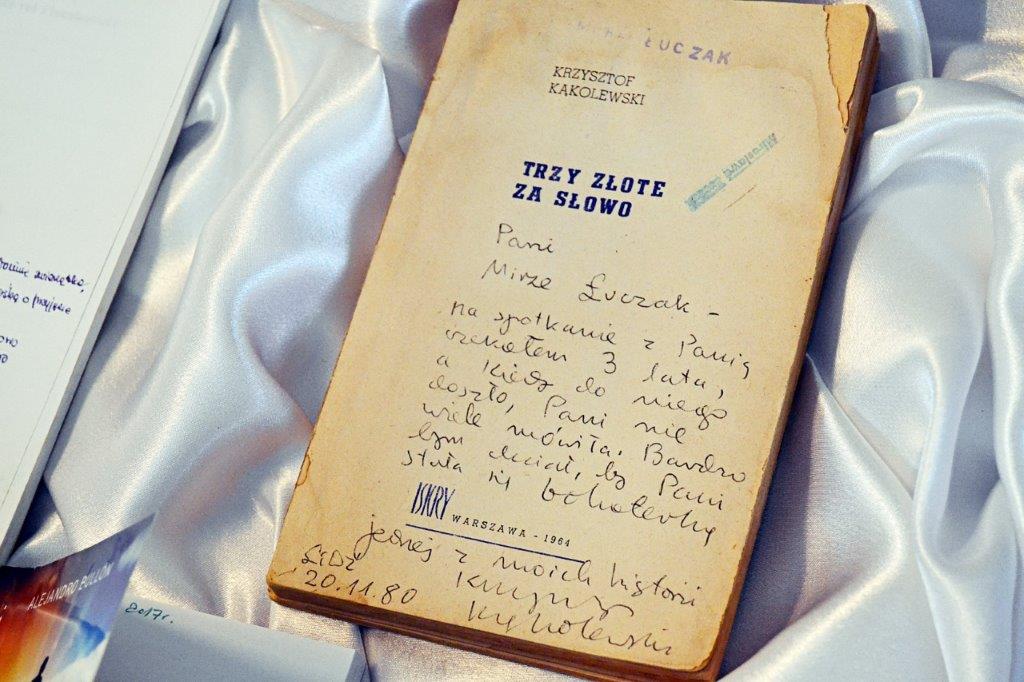 ŁUCZAK
KRZYSZTOF
KĄKOLEWSKI
TRZY ZŁOTE
ZA SŁOWO
Pani
Mirze Łuczak -
na spotkanie z Panią
czekałem 3 lata,
a kiedy do niego
doszło, Pani nie
wiele mówiła. Bardzo
bym chciał, by Pani
stała się bohaterką
ISKRY
WARSZAWA - 1964
jednej z moich historii
Łódź
20.11.80
Krzysztof
Kąkolewski
ALEJANDRO BULLÓN
2017r.